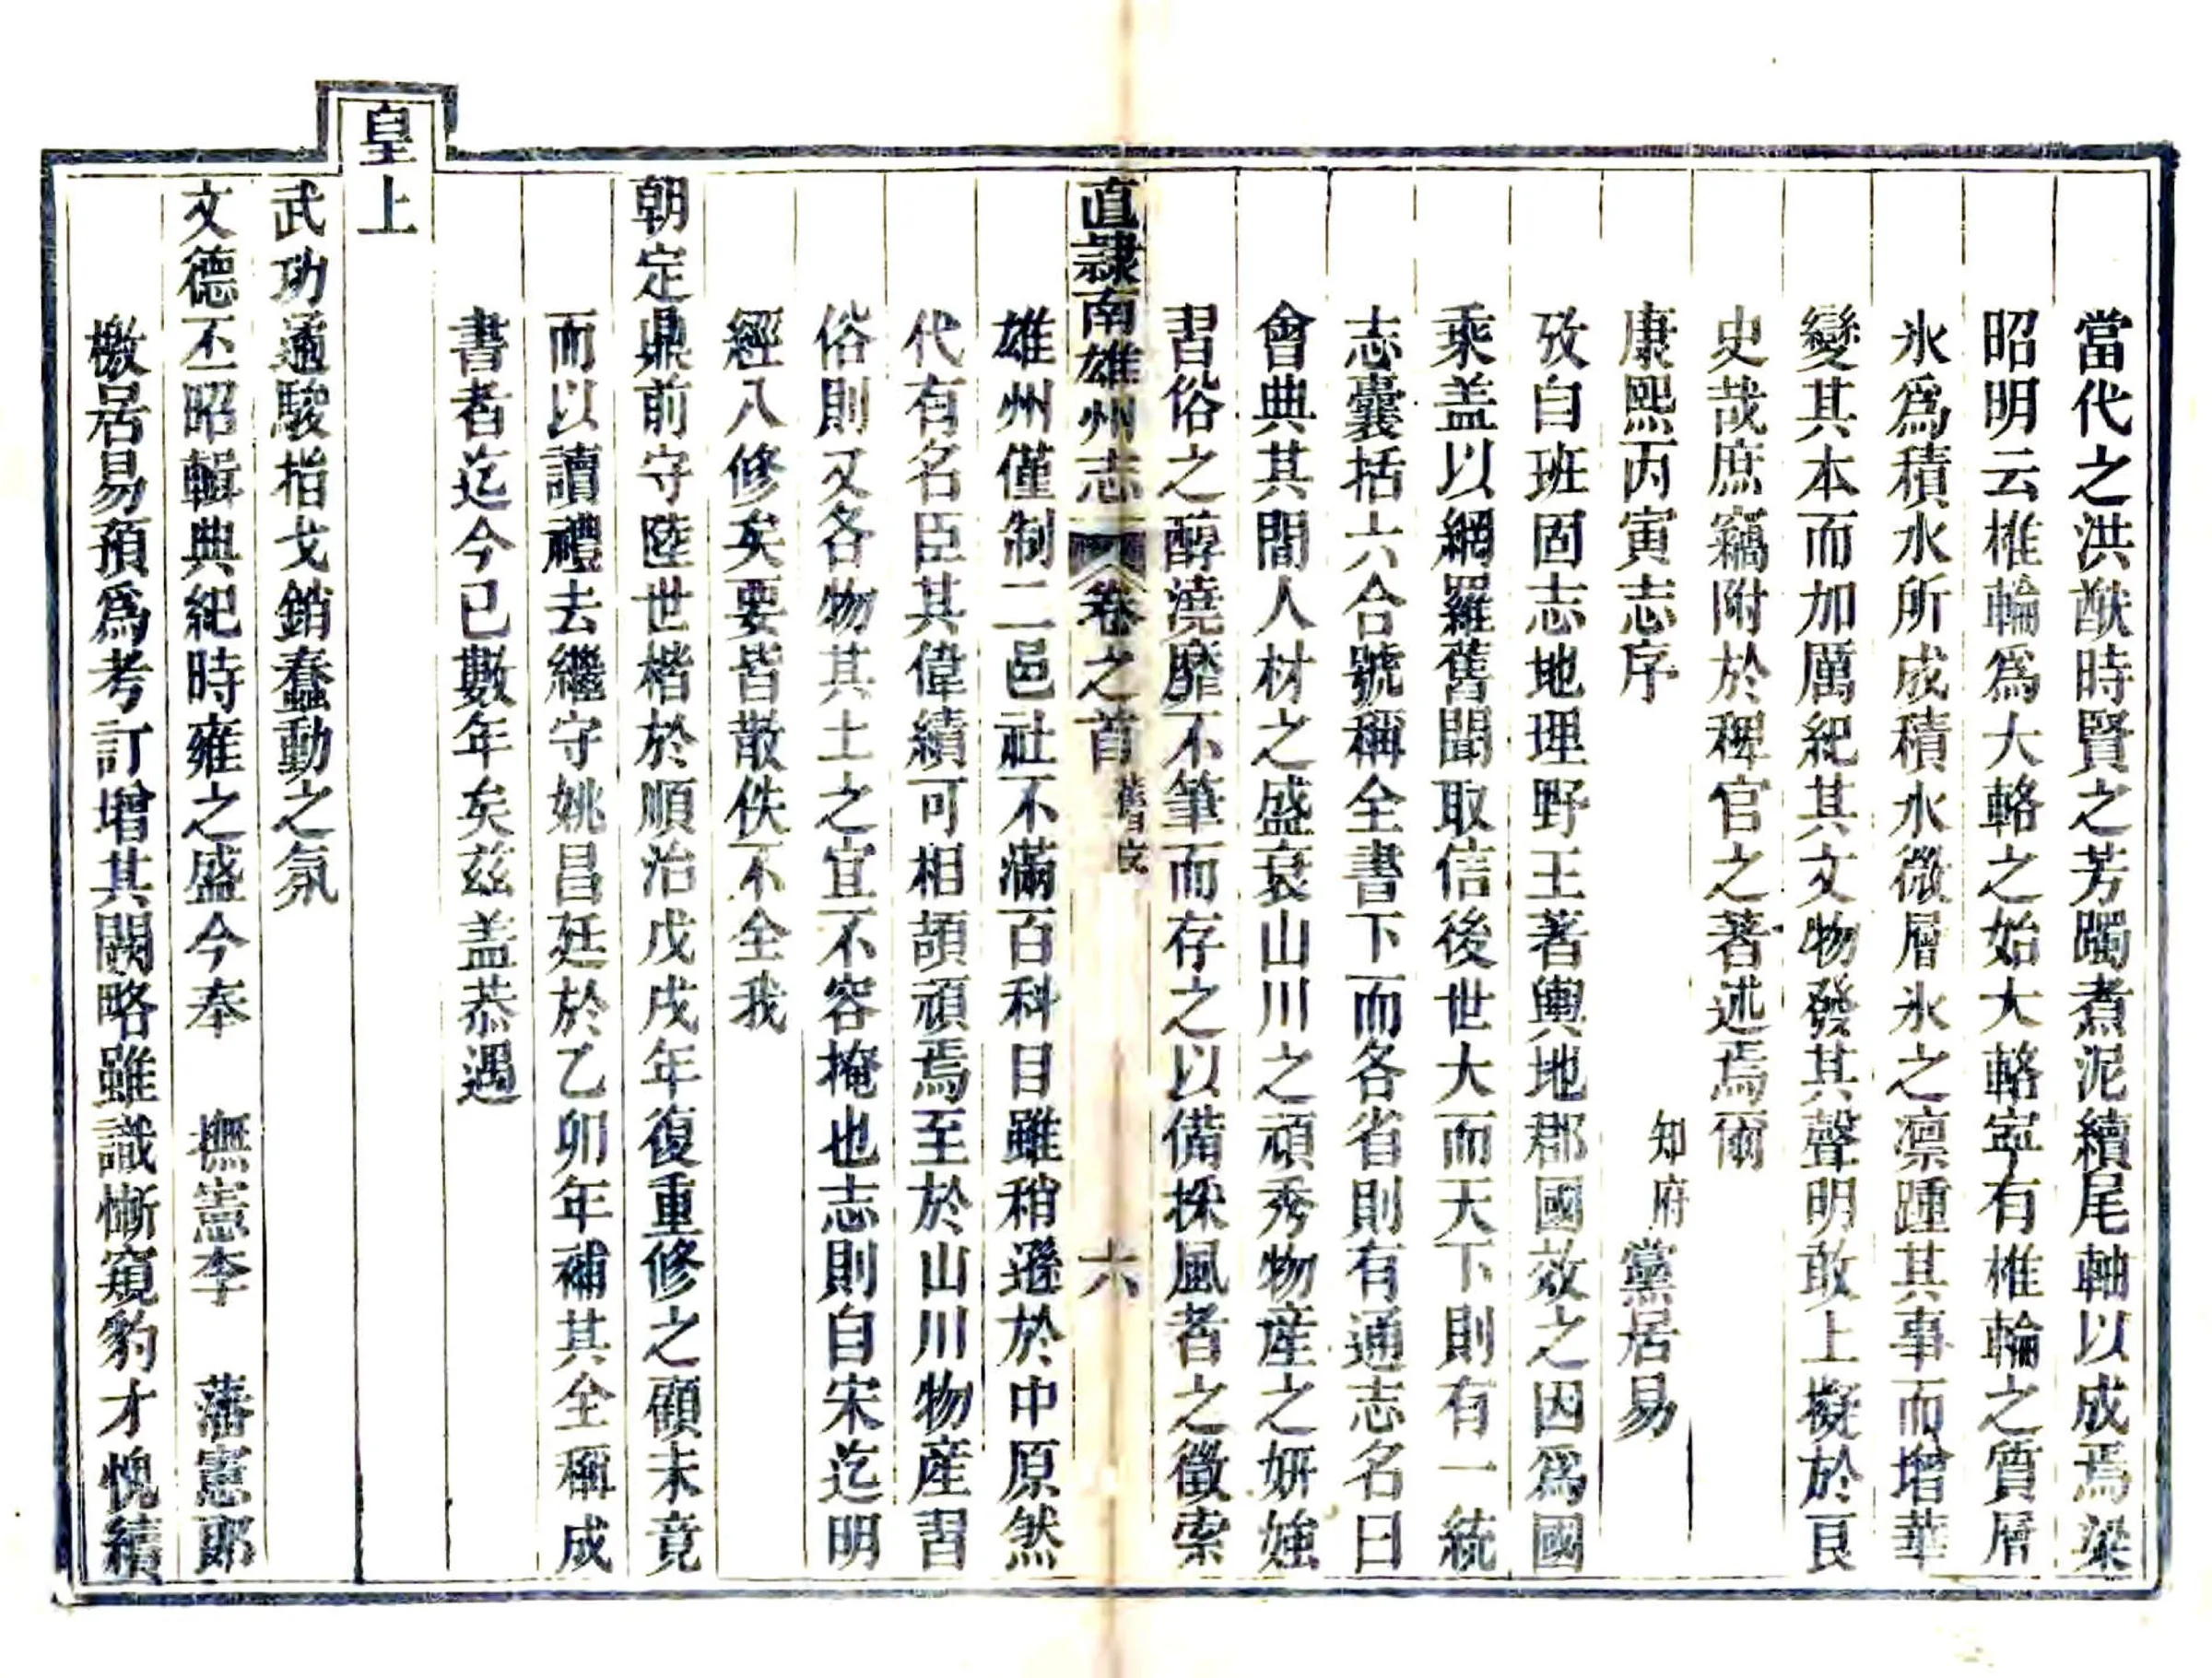 當代之洪猷時賢之芳躅煮泥續尾軸以成焉梁
昭明云椎輪爲大輅之始大輅寧有椎輪之質層
氷爲積水所成積水微層氷之凛踵其事而增華
變其本而加厲紀其文物發其聲明敢上擬於良
史哉庶竊附於稗官之著述焉爾
康熙丙寅志序　知府　黨居易
攷自班固志地理野王著輿地郡國效之因爲國
乘盖以網羅舊聞取信後世大而天下則有一統
志囊括六合號稱全書下而各省則有通志名曰
會典其間人材之盛衰山川之頑秀物産之妍媸
習俗之醇澆靡不筆而存之以備採風者之徵索
直隷南雄州志　卷之首　舊序　六
雄州僅制二邑社不滿百科目雖稍遜於中原然
代有名臣其偉績可相頡頏焉至於山川物産習
俗則又各物其土之宜不容掩也志則自宋迄明
經八修矣要皆散佚不全我
朝定鼎前守陸世楷於順治戊戌年復重修之顧未竟
而以讀禮去繼守姚昌廷於乙卯年補其全稱成
書者迄今已數年矣兹盖恭遇
皇上
武功遹駿㫖戈銷蠢動之氛
文德丕昭輯典紀時雍之盛今奉　撫憲李　藩憲郎
檄居易預爲考訂增其闕略雖識慚窺豹才愧續